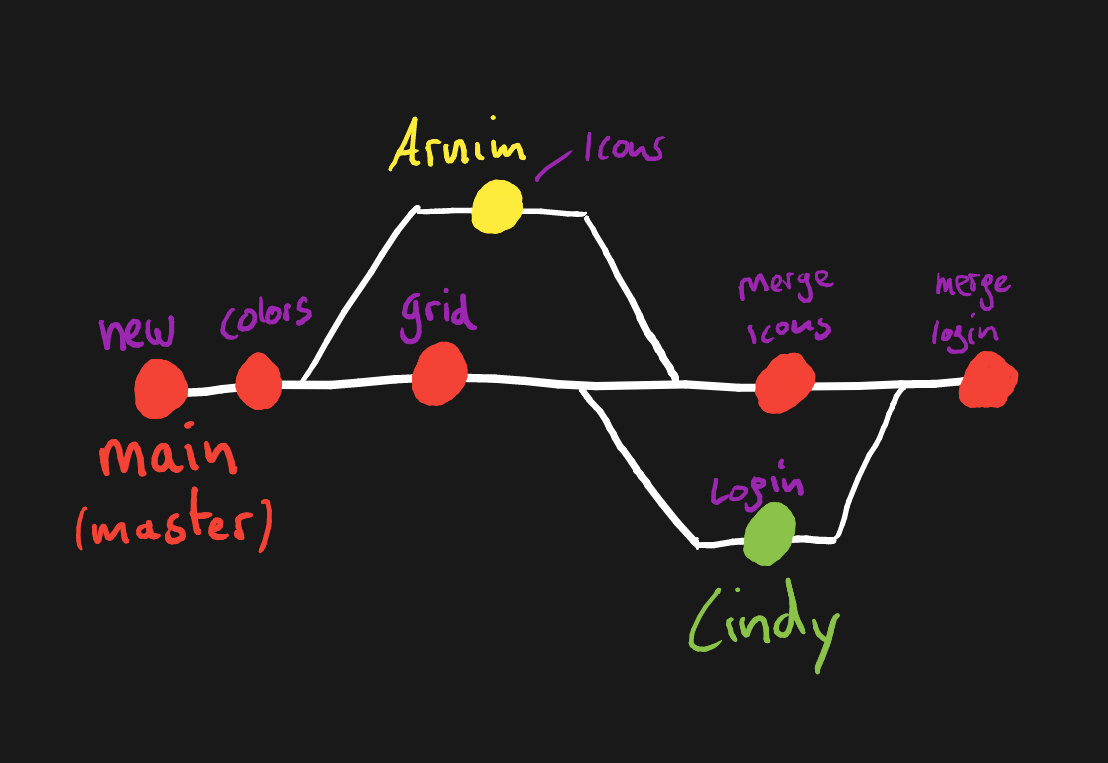 Arnim
Icons
new
colors
grid
merge
icons
merge
login
main
(master)
Login
Cindy